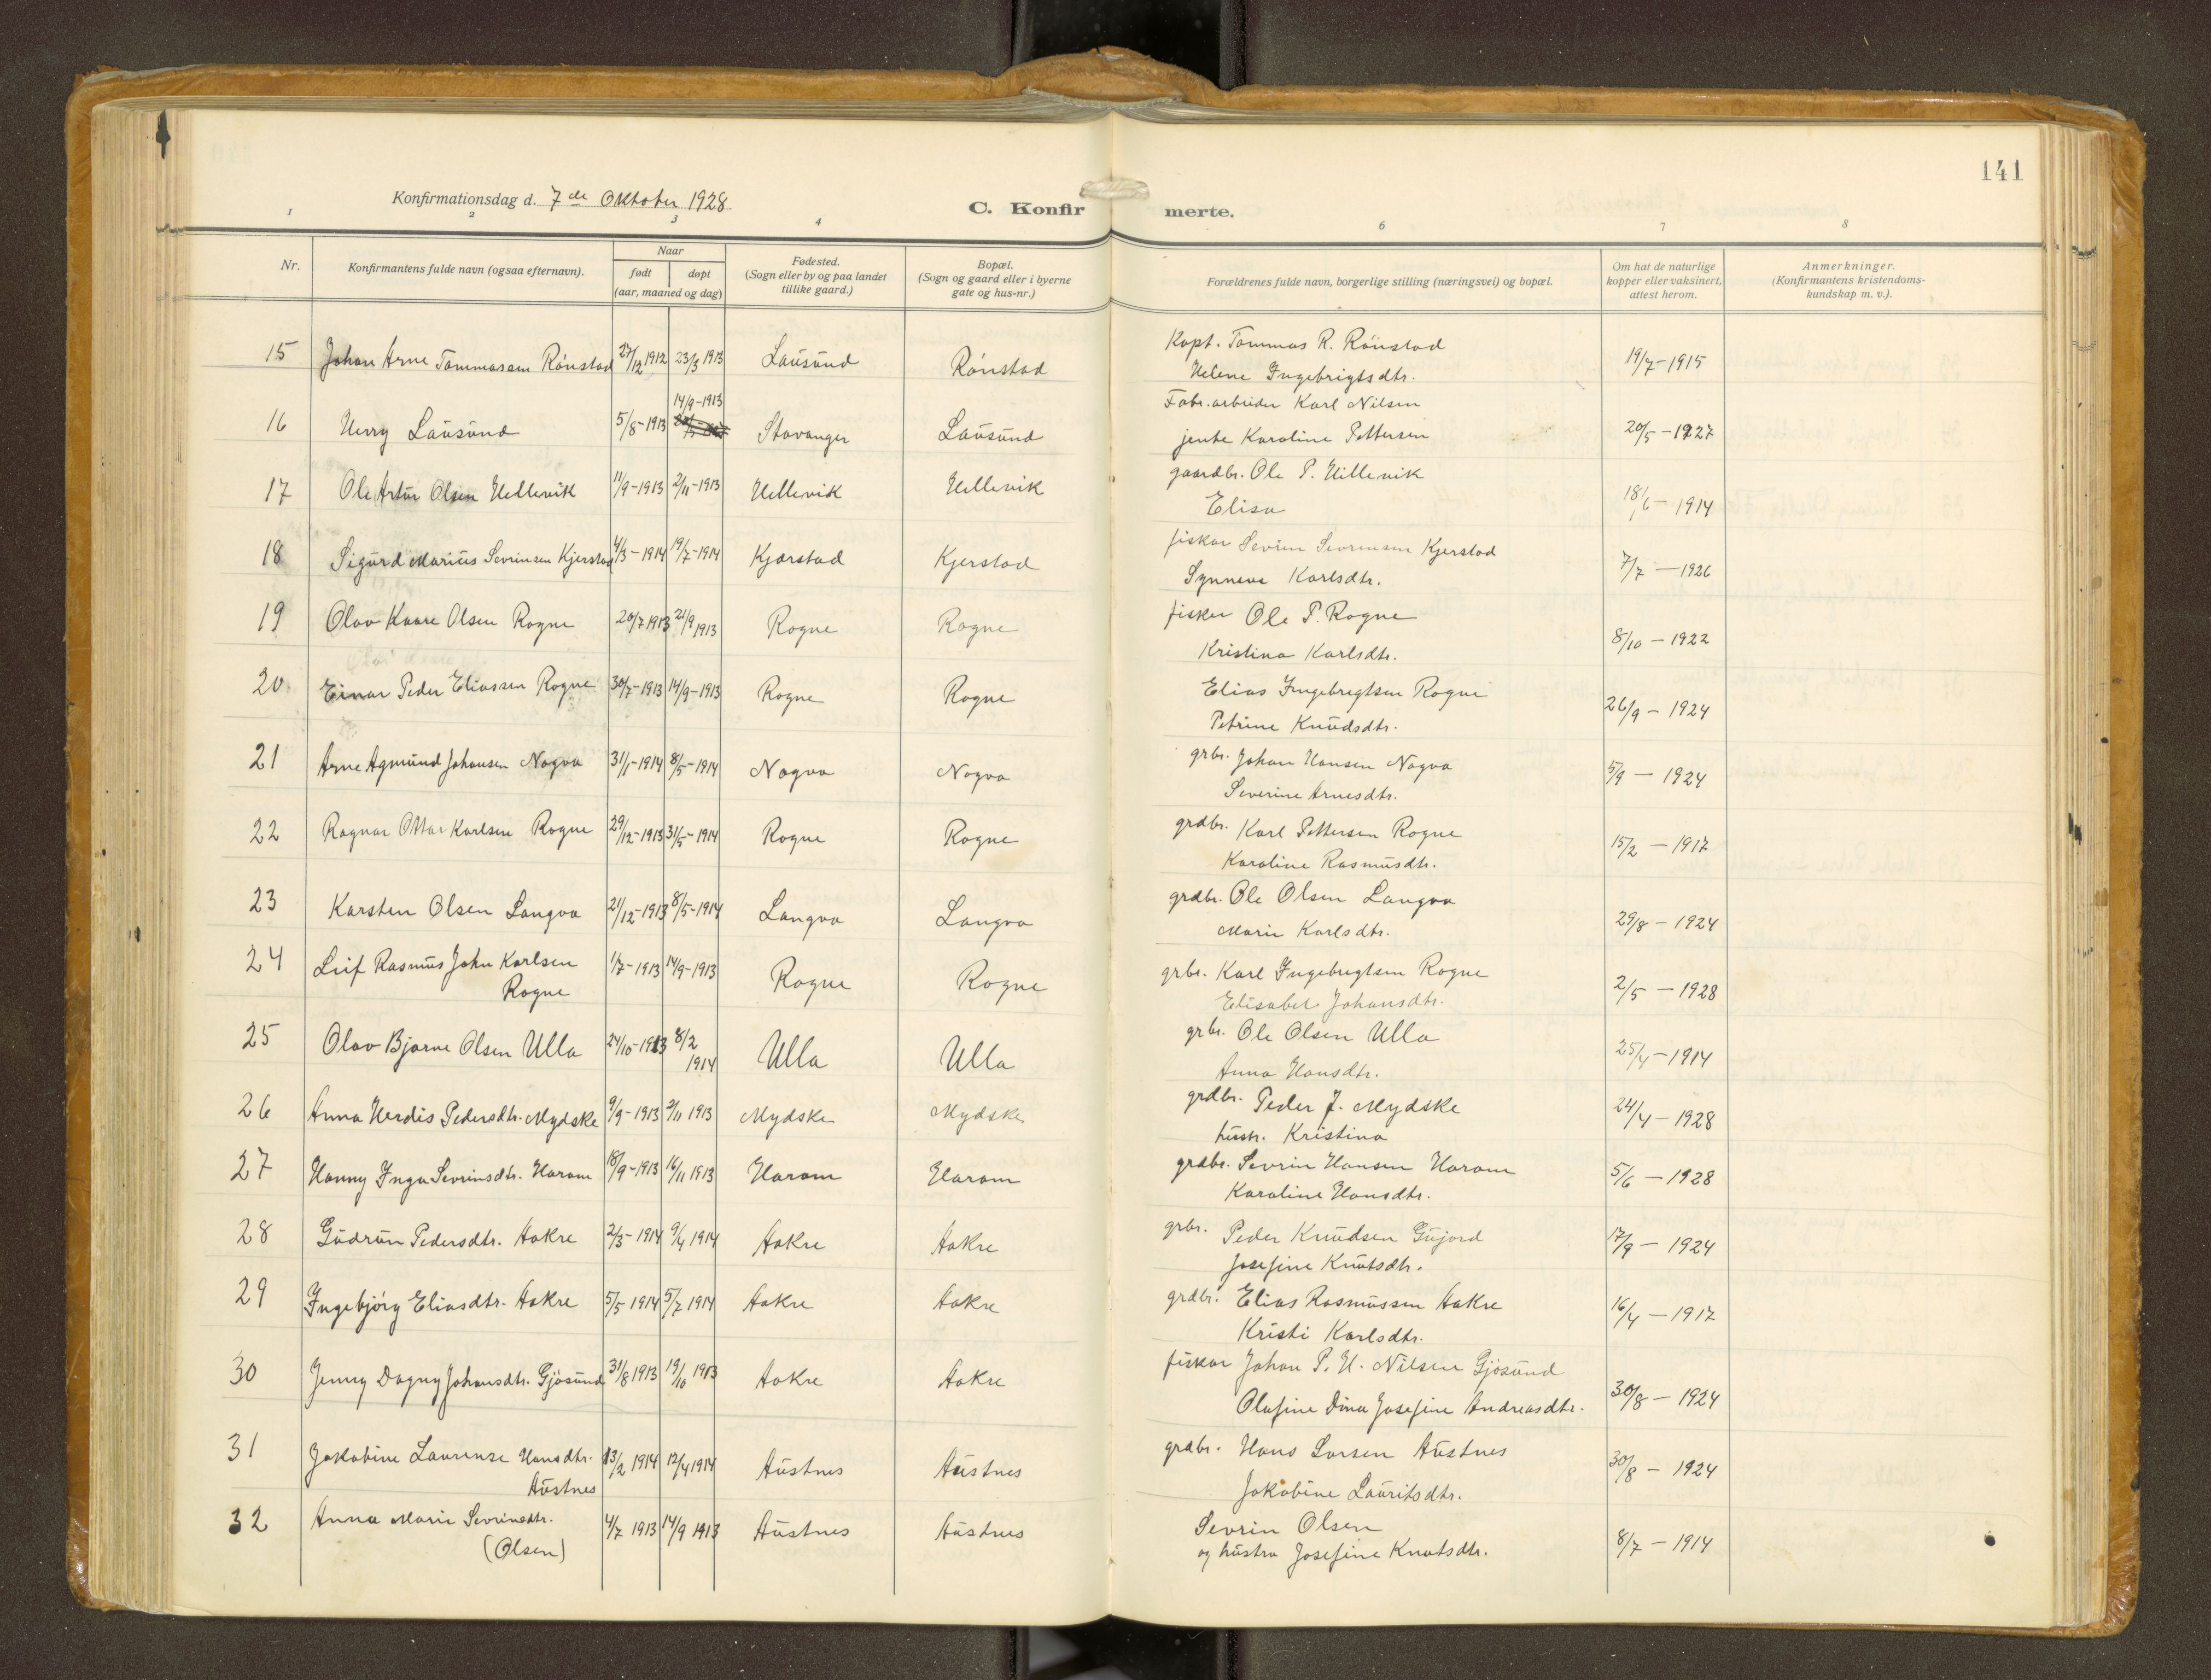 141
Konfirmationsdag d. 7de Oktober 1928
C. Konfir merte.
1 2 3 4 6 7 8
Nr.
Konfirmantens fulde navn (ogsaa efternavn).
Naar
født døpt
(aar, maaned og dag)
Fødested.
(Sogn eller by og paa landet
tillike gaard.)
Bopæl.
(Sogn og gaard eller i byerne
gate og hus-nr.)
Forældrenes fulde navn, borgerlige stilling (næringsvei) og bopæl.
Om hat de naturlige
kopper eller vaksinert,
attest herom.
Anmerkninger.
(Konfirmantens kristendoms-
kundskap m. v.).
15 Johan Arne Tommassen Rönstad 27/12 1912 23/3 1913 Lausund Rönstad
Kapt. Tommas R. Rönstad
Helene Ingebrigtsdtr.
19/7-1915
16 Herry Lausund 5/8-1913 14/9-1913 Stavanger Lausund
Fabr.arbeider Karl Nilsen
jente Karoline Pettersen
20/5-1927
17 Ole Artur Olsen Hellevik 11/9-1913 2/11-1913 Hellevik Hellevik
gaardbr. Ole P. Hellevik
Elisa
18/6-1914
18 Sigurd Marius Sevrinsen Kjerstad 4/3-1914 19/7-1914 Kjærstad Kjerstad
fisker Sevrin Sevrinsen Kjerstad
Synneva Karlsdtr.
7/7-1926
19 Olav Kaare Olsen Rogne 20/7 1913 21/9 1913 Rogne Rogne
fisker Ole P. Rogne
Kristina Karlsdtr.
8/10-1922
20 Einar Peder Eliassen Rogne 30/7-1913 14/9-1913 Rogne Rogne
Elias Ingebregtsen Rogne
Petrine Knudsdtr.
26/9-1924
21 Arne Agmund Johansen Nogva 31/1-1914 8/5-1914 Nogva Nogva
grbr. Johan Hansen Nogva
Severine Arnesdtr.
5/9-1924
22 Ragnar Ottar Karlsen Rogne 29/12-1913 31/5-1914 Rogne Rogne
grdbr. Karl Pettersen Rogne
Karoline Rasmusdtr.
15/2-1917
23 Karsten Olsen Langva 21/12-1913 8/5-1914 Langva Langva
grdbr. Ole Olsen Langva
Marie Karlsdtr.
29/8-1924
24 Leif Rasmus John Karlsen
Rogne 1/7-1913 14/9-1913 Rogne Rogne
grbr. Karl Ingebregtsen Rogne
Elisabet Johansdtr.
2/5-1928
25 Olav Bjarne Olsen Ulla 24/10-1913 8/2 1914 Ulla Ulla
grbr. Ole Olsen Ulla
Anna Hansdtr.
25/4-1914
26 Anna Herdis Pedersdtr. Mydske 9/9-1913 9/11 1913 Mydske Mydske
grdbr. Peder J. Mydske
hustr. Kristina
24/4-1928
27 Hanny Inga Sevrinsdtr. Haram 18/9-1913 16/11 1913 Haram Haram
grdbr. Sevrin Hansen Haram
Karoline Hansdtr.
5/6-1928
28 Gudrun Pedersdtr. Aakre 2/3-1914 9/4 1914 Aakre Aakre
grbr. Peder Knudsen Gujord
Josefine Knutsdtr.
17/9-1924
29 Ingebjörg Eliasdtr. Aakre 5/5 1914 5/7 1914 Aakre Aakre
grdbr. Elias Rasmussen Aakre
Kristi Karlsdtr.
16/4-1917
30 Jenny Dagny Johansdtr. Gjøsund 31/8 1913 19/10 1913 Aakre Aakre
fisker Johan P. H. Nilsen Gjøsund
Olufine Dina Josefine Andreasdtr.
30/8-1924
31 Jakobine Laurense Hansdtr.
Austnes 13/2 1914 12/4 1914 Austnes Austnes
grdbr. Hans Larsen Austnes
Jakobine Lauritsdtr.
30/8-1924
32 Anna Marie Sevrinsdtr.
(Olsen) 4/7 1913 14/9 1913 Austnes Austnes
Sevrin Olsen
og hustru Josefine Knutsdtr.
8/7-1914